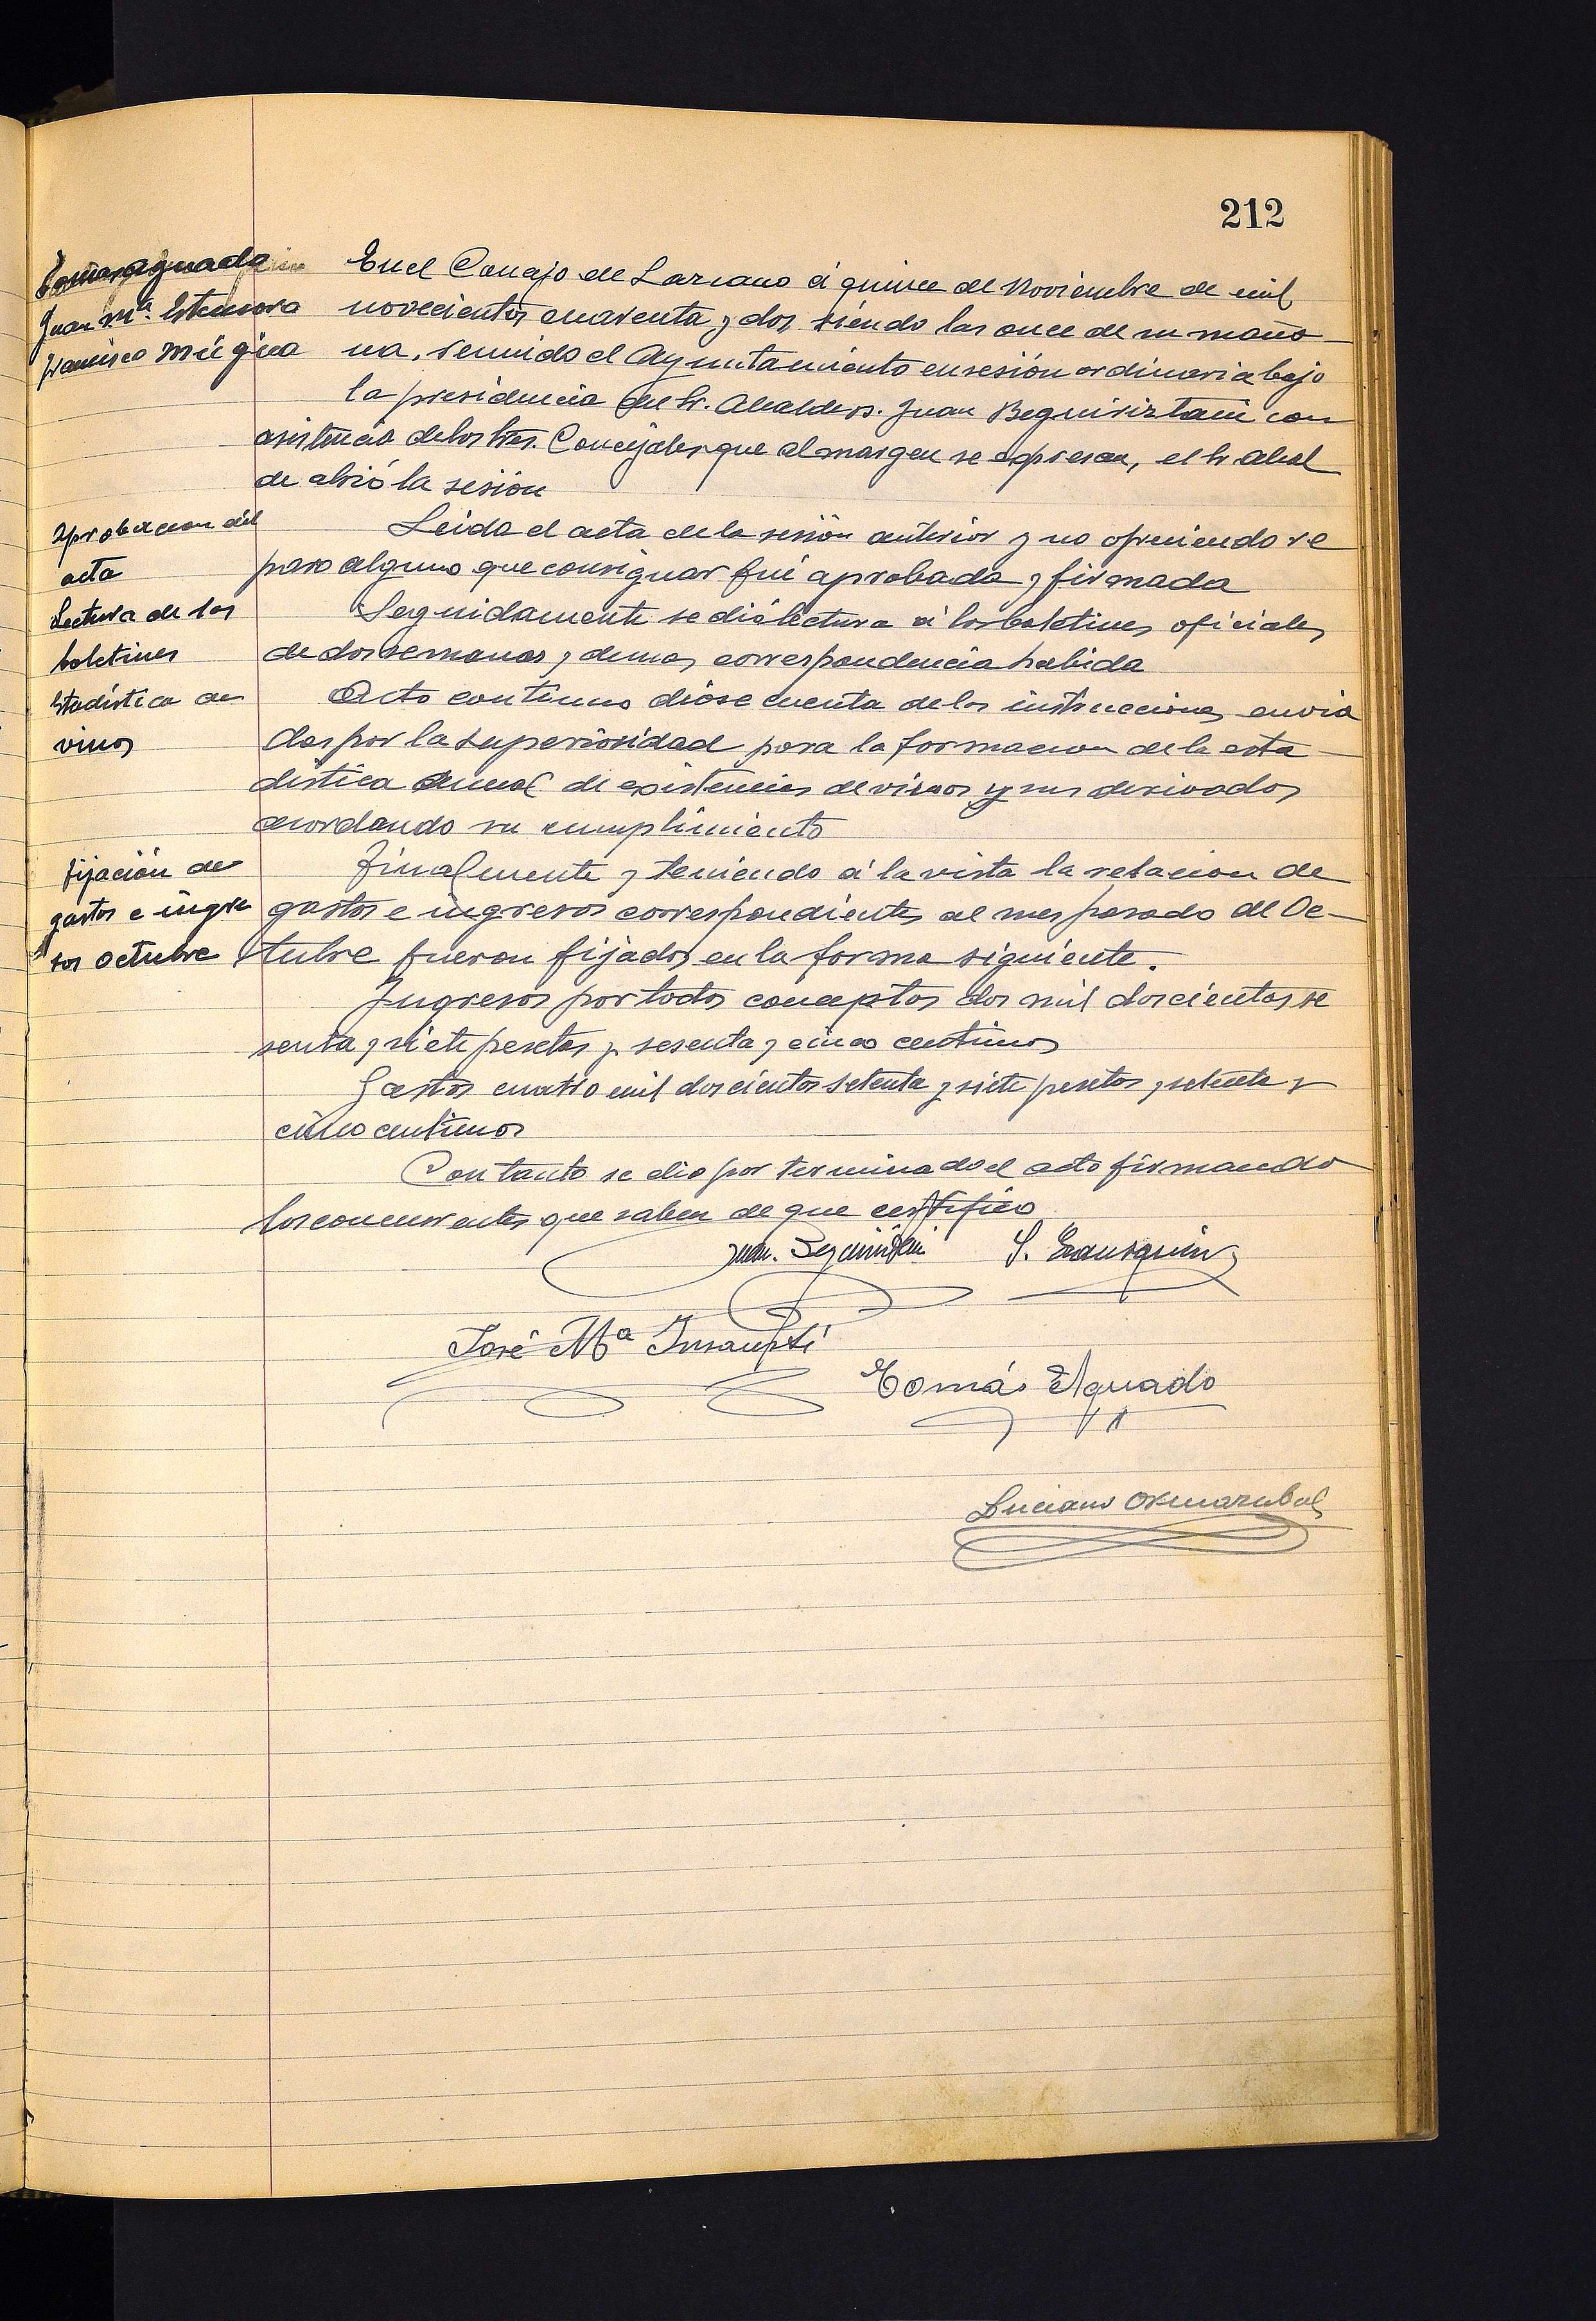 212
Tomas Aguado
Juan Mª. Estensoro
Francisco Múgica
En el Concejo de Lazcano á quince de Noviembre de mil
novecientos cuarenta y dos siendo las once de su maña-
na, reunido el Ayuntamiento en sesión ordinaria bajo
la presidencia del Sr. Alcalde D. Juan Beguiristain con
asistencia de los Sres. Concejales que al margen se expresan, el Sr Alcal
de abrió la sesión
Aprobacion del
acta
Leida el acta de la sesión anterior y no ofreciendo re
paro alguno que consignar fué aprobada y firmada
Lectura de los
boletines
Seguidamente se dió lectura á los boletines oficiales
de dos semanas y demas correspondencia habida
Estadística de
vinos
Acto continuo dióse cuenta de las instrucciones envia
das por la superioridad para la formacion de la esta-
distica anual de existencias de vinos y sus derivados
acordando su cumplimiento
fijación de
gastos e ingre
sos octubre
Finalmente y teniendo á la vista la relacion de
gastos e ingresos correspondientes al mes pasado de Oc-
tubre fueron fijados en la forma siguiente.
Ingresos por todos conceptos dos mil doscientas se
senta y siete pesetas y sesenta y cinco centimos
Gastos cuatro mil doscientos setenta y siete pesetas y setenta y
cinco centimos
Con tanto se dio por terminado el acto firmando
los concurrentes que saben de que certifico
Juan Beguiristain
José Mª Insausti
Tomás Aguado
Luciano